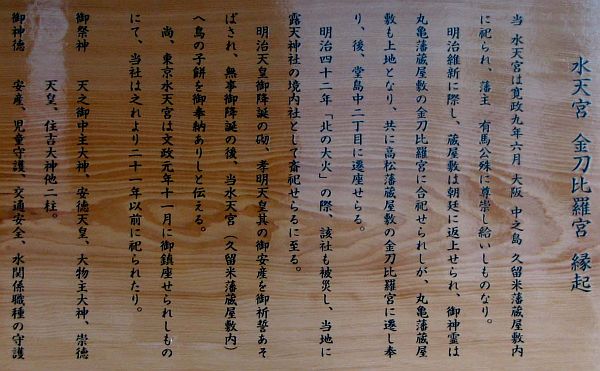 水天宮 金刀比羅宮 縁起
当 水天宮は寛政九年六月 大阪 中之島 久留米藩蔵屋敷内
に祀られ、藩主 有馬公殊に尊崇し給いしものなり。
明治維新に際し、蔵屋敷は朝廷に返上せられ、御神霊は
丸亀藩蔵屋敷の金刀比羅宮に合祀せられしが、丸亀藩蔵屋
敷も上地となり、共に高松藩蔵屋敷の金刀比羅宮に遷し奉
り、後、堂島中二丁目に遷座せらる。
明治四十二年「北の大火」の際、該社も被災し、当地に
露天神社の境内社として斎祀せらるに至る。
明治天皇御降誕の砌、孝明天皇其の御安産を御祈誓あそ
ばされ、無事御降誕の後、当水天宮(久留米藩蔵屋敷内)
へ鳥の子餅を御奉納ありしと伝える。
尚、東京水天宮は文政元年十一月に御鎮座せられしもの
にて、当社は之れより二十一年以前に祀られたり。
御祭神 天之御中主大神、安徳天皇、大物主大神、崇徳
天皇、住吉大神他二柱。
御神徳 安産、児童守護、交通安全、水関係職種の守護